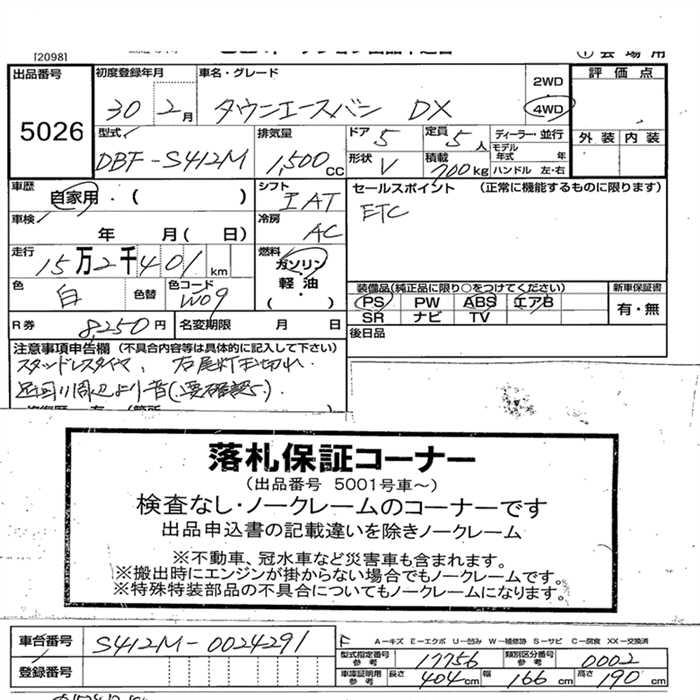 [2098]
① 会場用
出品番号
5026
初度登録年月
30 2月
車名・グレード
タウンエースバン DX
2WD
4WD
評価点
外装 内装
型式
DBF-S412M
排気量
1,500cc
ドア 5
定員 5人
形状 V
積載 700kg
ディーラー・並行
モデル年式 年
ハンドル 左・右
車歴 自家用・( )
シフト
IAT
セールスポイント (正常に機能するものに限ります)
ETC
車検 年 月(日)
冷房
AC
走行 15万2千401km
燃料
ガソリン
軽油
( )
色 白 色替
色コード W09
装備品(純正品に限り○をつけてください)
PS PW ABS エアB
SR ナビ TV
新車保証書
有・無
R券 8,250円 名変期限 月 日
後日品
注意事項申告欄 (不具合内容等は具体的に記入して下さい)
スタッドレスタイヤ、右尾灯玉切れ、
足回り周辺より音(要確認).
落札保証コーナー
(出品番号 5001号車~)
検査なし・ノークレームのコーナーです
出品申込書の記載違いを除きノークレーム
※不動車、冠水車など災害車も含まれます。
※搬出時にエンジンが掛からない場合でもノークレームです。
※特殊特装部品の不具合についてもノークレームになります。
車台番号 S412M-0024291
F A-キズ E-エクボ U-凹み W-補修跡 S-サビ C-腐食 XX-交換済
型式指定番号 参考 17756 類別区分番号 参考 0002
登録番号
車庫証明用 参考 長さ 404cm 幅 166cm 高さ 190cm